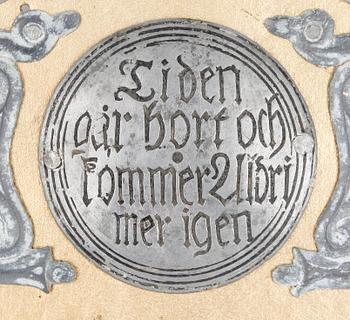 Tiden
går bort och
kommer Aldri
mer igen